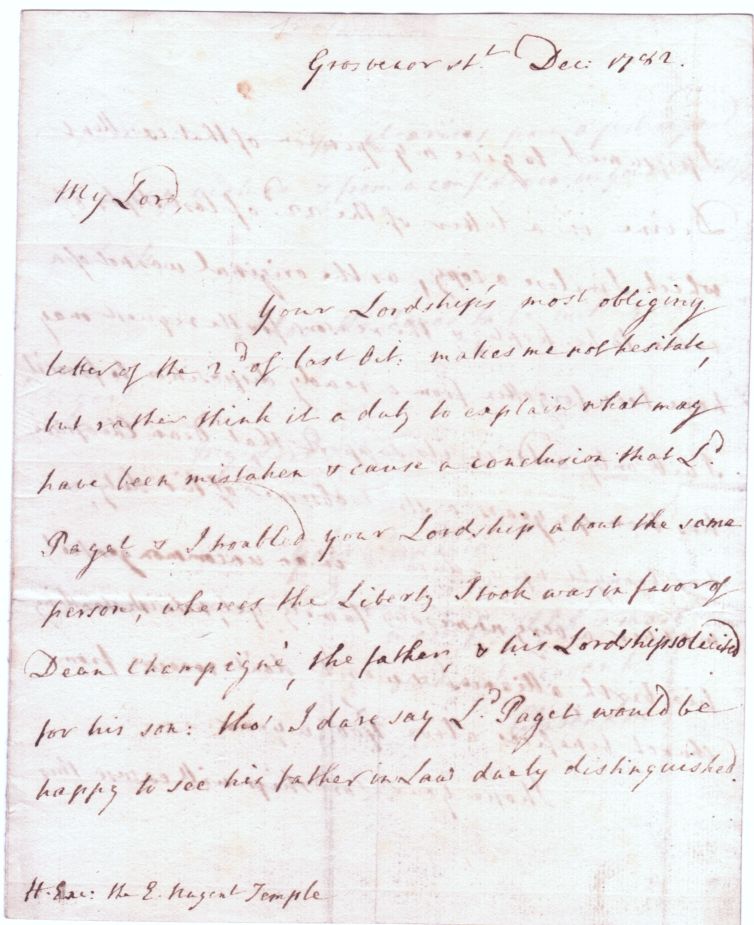 Grosvenor St. Dec: 1782.
My Lord,
Your Lordship's most obliging
letter of the 2.d of last Oct: makes me not hesitate,
but rather think it a duty to explain what may
have been mistaken & cause a conclusion that L.d
Paget & I troubled your Lordship about the same
person, whereas the Liberty I took was in favor of
Dean Champigné, the father, & his Lordship solicited
for his son: tho' I dare say L.d Paget would be
happy to see his father in Law duely distinguished.
H. Exc: the E. Nugent Temple